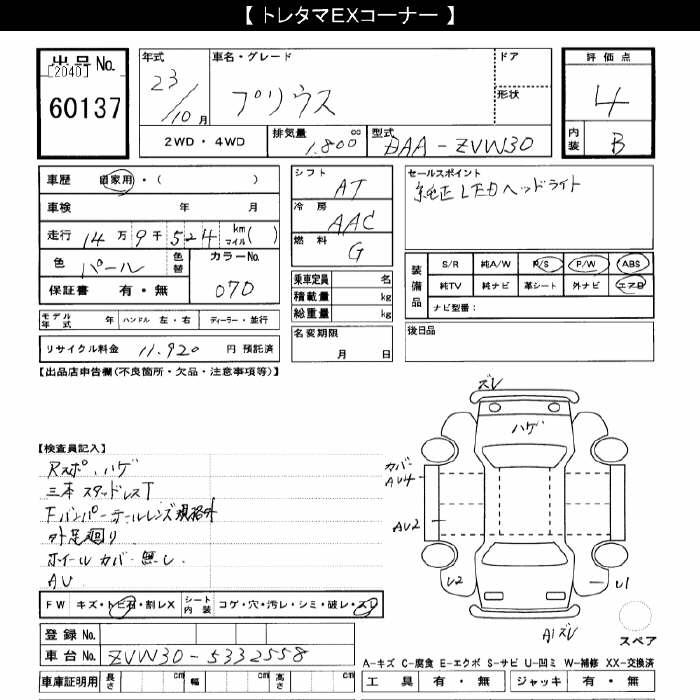 【 トレタマEXコーナー 】
出品No.
[2040]
60137
年式
23/10月
車名・グレード
プリウス
ドア
形状
評価点
4
内装
B
2WD・4WD
排気量
1.800 cc
型式
DAA-ZVW30
車歴 自家用・( )
車検 年 月
走行 14万9千524 km マイル( )
色 パール 色替 カラーNo. 070
保証書 有・無
モデル年式 年 ハンドル 左・右 ディーラー・並行
リサイクル料金 11.920 円 預託済
シフト AT
冷房 AAC
燃料 G
乗車定員 名
積載量 kg
総重量 kg
名変期限
月 日
セールスポイント
純正LEDヘッドライト
装備品
S/R 純A/W P/S P/W ABS
純TV 純ナビ 革シート 外ナビ エアB
ナビ型番:
後日品
【出品店申告欄(不良箇所・欠品・注意事項等)】
【検査員記入】
Rスポ、ハゲ
三本 スタッドレスT
Fバンパー テールレンズ規格外
外足廻り
ホイールカバー無し
AU
FW キズ・トビ石・割レX シート内装 コゲ・穴・汚レ・シミ・破レ・スレ
登録No.
車台No. ZVW30-5332558
車庫証明用 長さ cm 幅 cm 高さ cm
ズレ
ハゲ
カバー
AU4
AU2
U2
U1
A1ズレ
スペア
A-キズ C-腐食 E-エクボ S-サビ U-凹ミ W-補修 XX-交換済
工具 有・無 ジャッキ 有・無